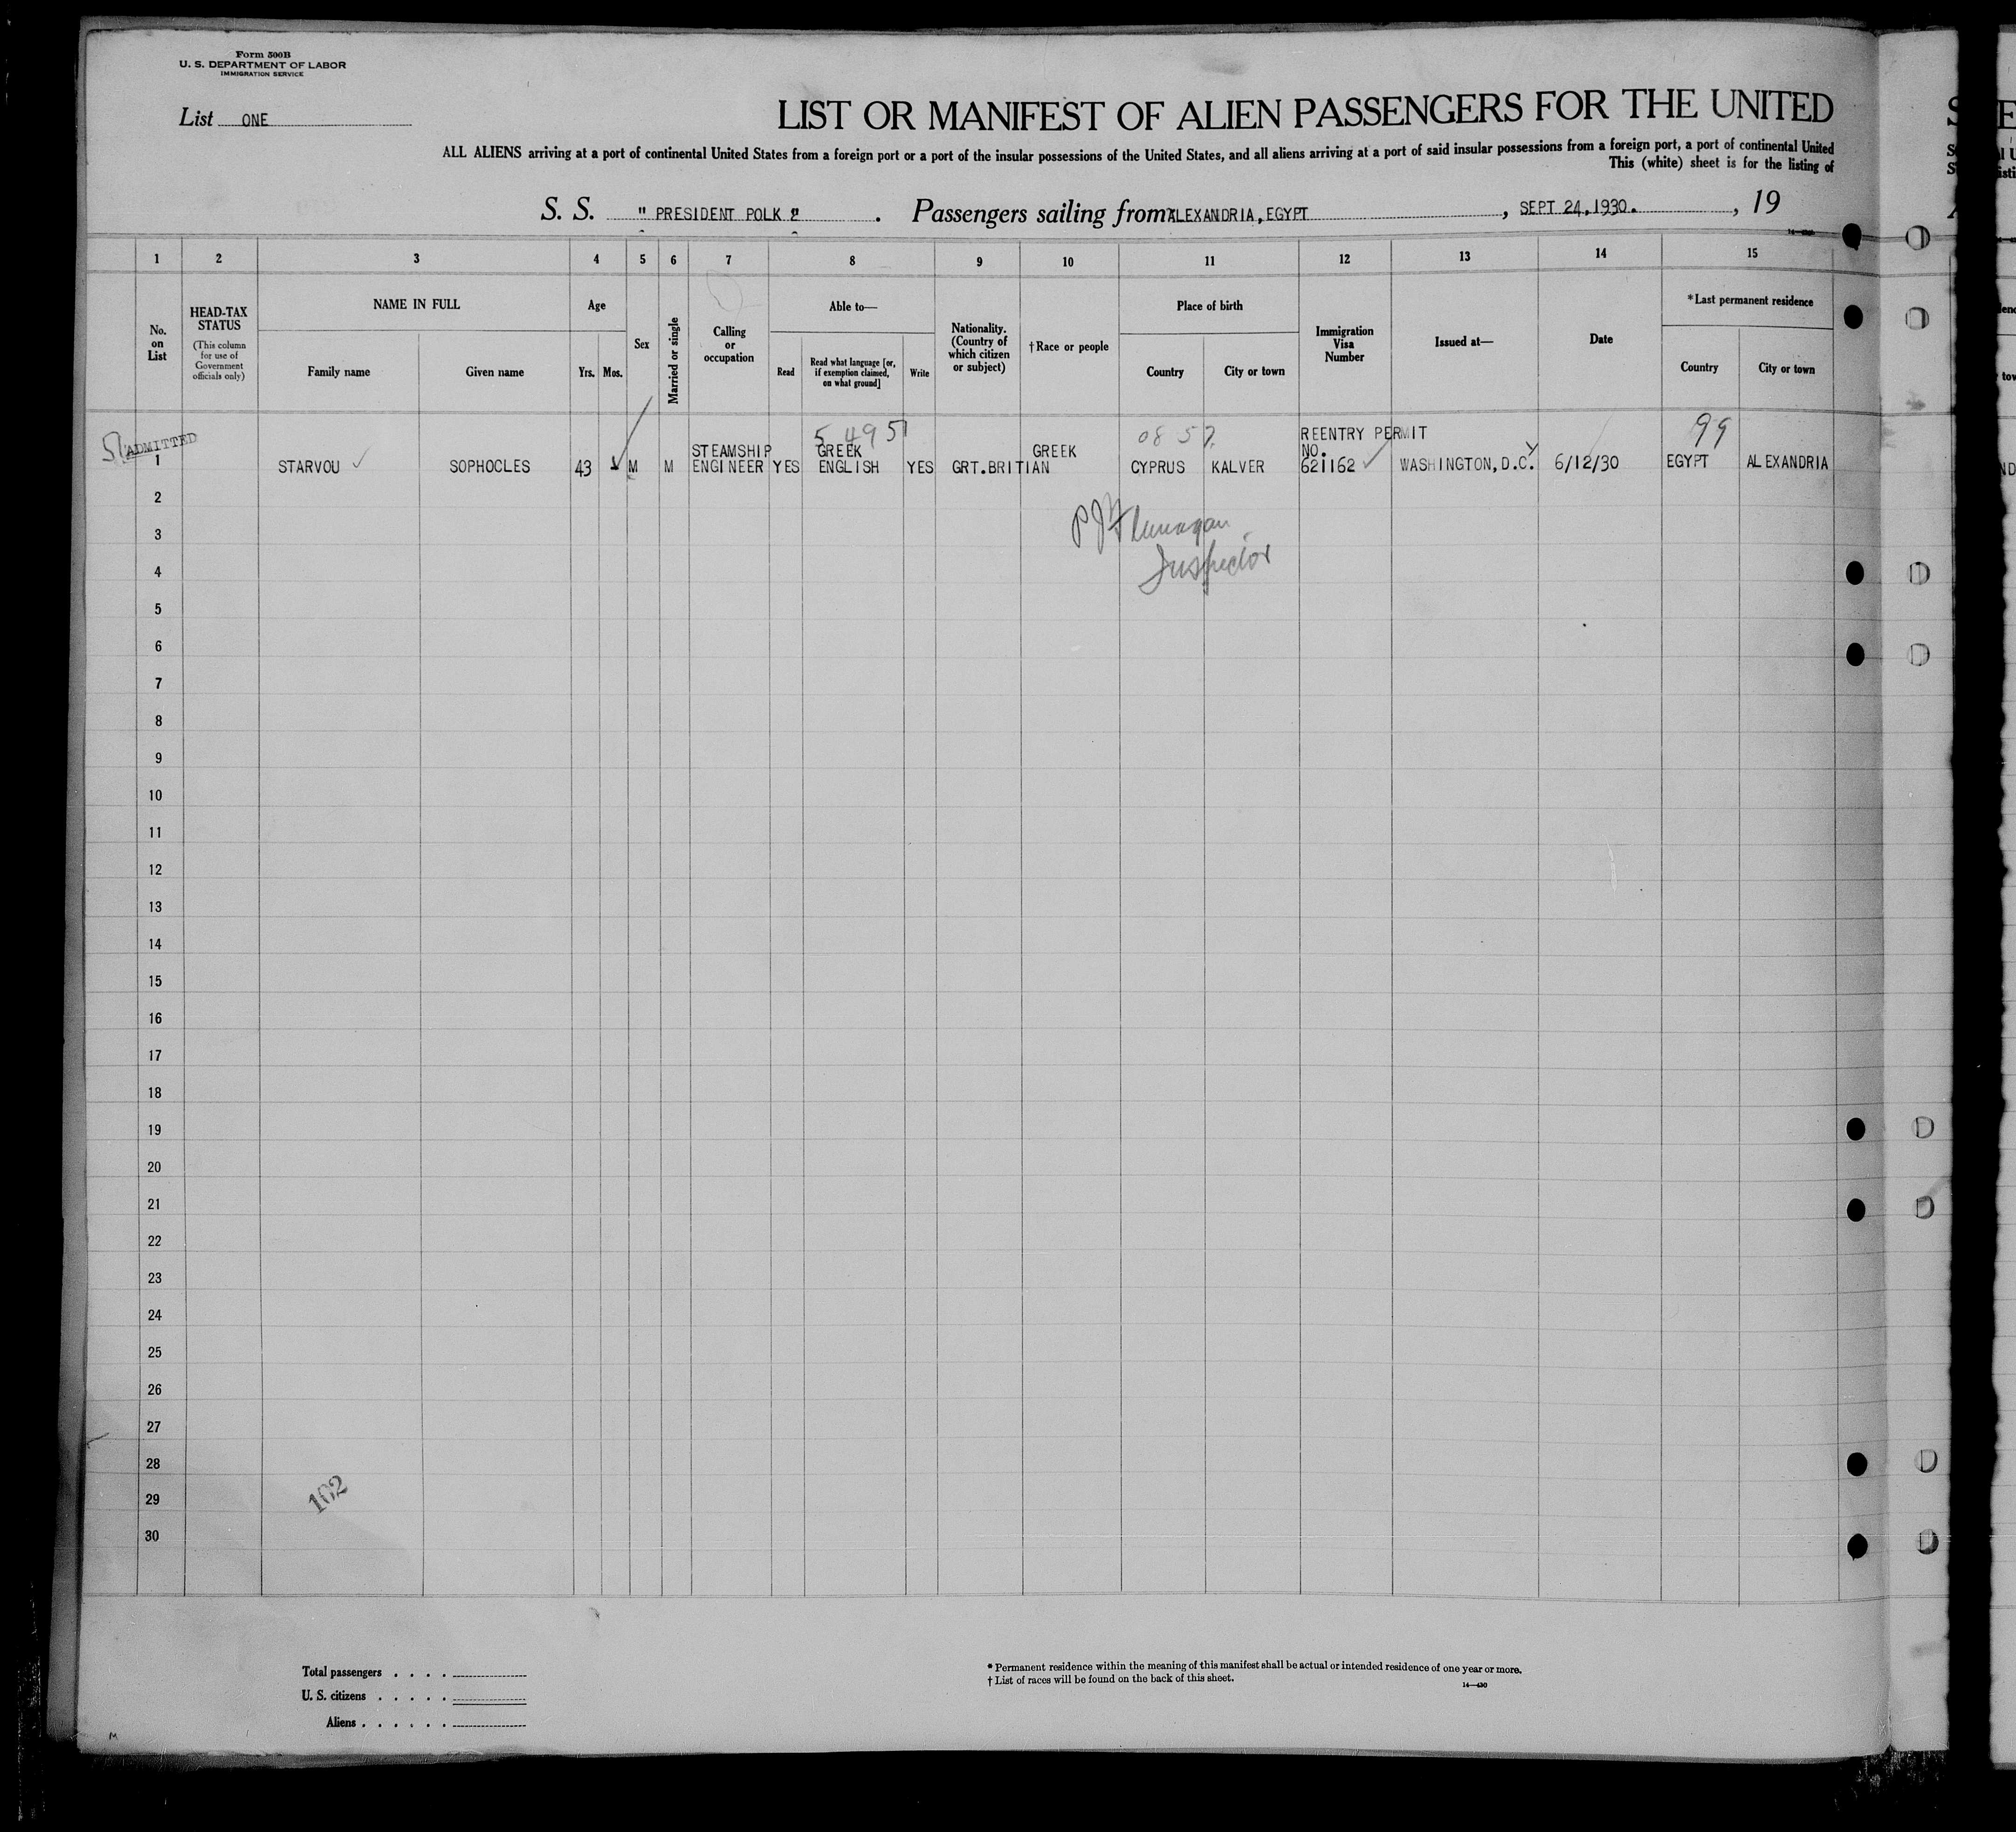 Form 500B
U. S. DEPARTMENT OF LABOR
IMMIGRATION SERVICE
List ONE
LIST OR MANIFEST OF ALIEN PASSENGERS FOR THE UNITED
ALL ALIENS arriving at a port of continental United States from a foreign port or a port of the insular possessions of the United States, and all aliens arriving at a port of said insular possessions from a foreign port, a port of continental United
This (white) sheet is for the listing of
S. S. " PRESIDENT POLK " . Passengers sailing from ALEXANDRIA, EGYPT , SEPT 24, 1930. , 19
1 2 3 4 5 6 7 8 9 10 11 12 13 14 15
No. on List
HEAD-TAX STATUS
(This column for use of Government officials only)
NAME IN FULL
Family name
Given name
Age
Yrs. Mos.
Sex
Married or single
Calling or occupation
Able to—
Read
Read what language [or, if exemption claimed, on what ground]
Write
Nationality. (Country of which citizen or subject)
†Race or people
Place of birth
Country
City or town
Immigration Visa Number
Issued at—
Date
*Last permanent residence
Country
City or town
ADMITTED
5 4951
08 57
99
REENTRY PERMIT
STEAMSHIP GREEK GREEK NO.
1 STARVOU SOPHOCLES 43 M M ENGINEER YES ENGLISH YES GRT.BRITIAN CYPRUS KALVER 621162 WASHINGTON, D.C. 6/12/30 EGYPT ALEXANDRIA
2
P J Flanagan
3
Inspector
4
5
6
7
8
9
10
11
12
13
14
15
16
17
18
19
20
21
22
23
24
25
26
27
28
102
29
30
Total passengers . . . .
U. S. citizens . . . . .
Aliens . . . . . .
* Permanent residence within the meaning of this manifest shall be actual or intended residence of one year or more.
† List of races will be found on the back of this sheet.
14—430